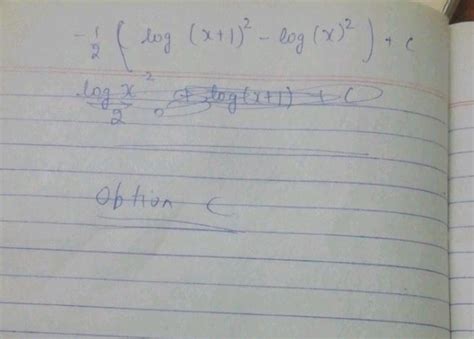 -1/2 ( log (x+1)² - log (x)² ) + C
log x² / 2 + log(x+1) + C
Option C